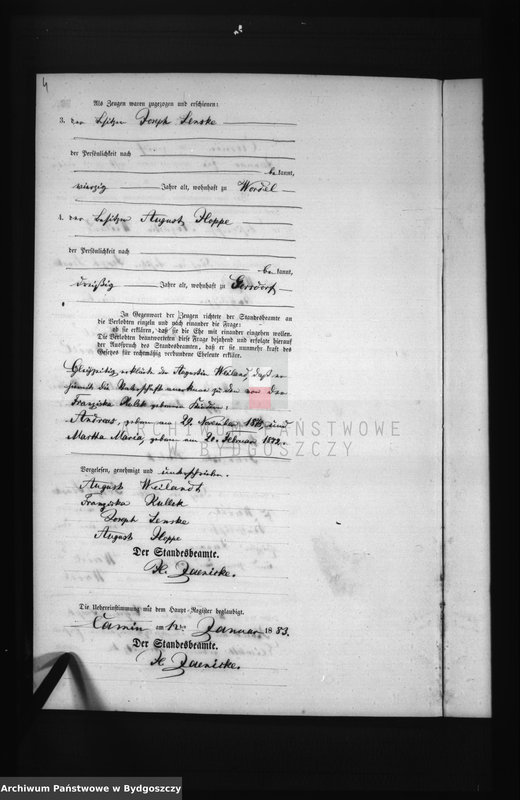 4
Als Zeugen waren zugezogen und erschienen:
3. der Besitzer Joseph Senske
der Persönlichkeit nach
be kannt,
vierzig Jahre alt, wohnhaft zu Wordel
4. der Besitzer August Hoppe
der Persönlichkeit nach
be kannt,
dreißig Jahre alt, wohnhaft zu Gersdorf
In Gegenwart der Zeugen richtete der Standesbeamte an
die Verlobten einzeln und nach einander die Frage:
ob sie erklären, daß sie die Ehe mit einander eingehen wollen.
Die Verlobten beantworteten diese Frage bejahend und erfolgte hierauf
der Ausspruch des Standesbeamten, daß er sie nunmehr kraft des
Gesetzes für rechtmäßig verbundene Eheleute erkläre.
Gleichzeitig erklärte der Augustin Weiland, daß er
die Vaterschaft zu den von der
Franziska Kulek geborene
Andreas, geboren am 29. November und
Martha Maria, geboren am 20. Februar
ARCHIWUM PAŃSTWOWE
W BYDGOSZCZY
Vorgelesen, genehmigt und unterschrieben.
August Weilandt
Franziska Kullek
Joseph Senske
August Hoppe
Der Standesbeamte.
H. Jaenicke.
Die Uebereinstimmung mit dem Haupt-Register beglaubigt.
Camin am Januar 1883.
Der Standesbeamte.
H. Jaenicke.
Archiwum Państwowe w Bydgoszczy